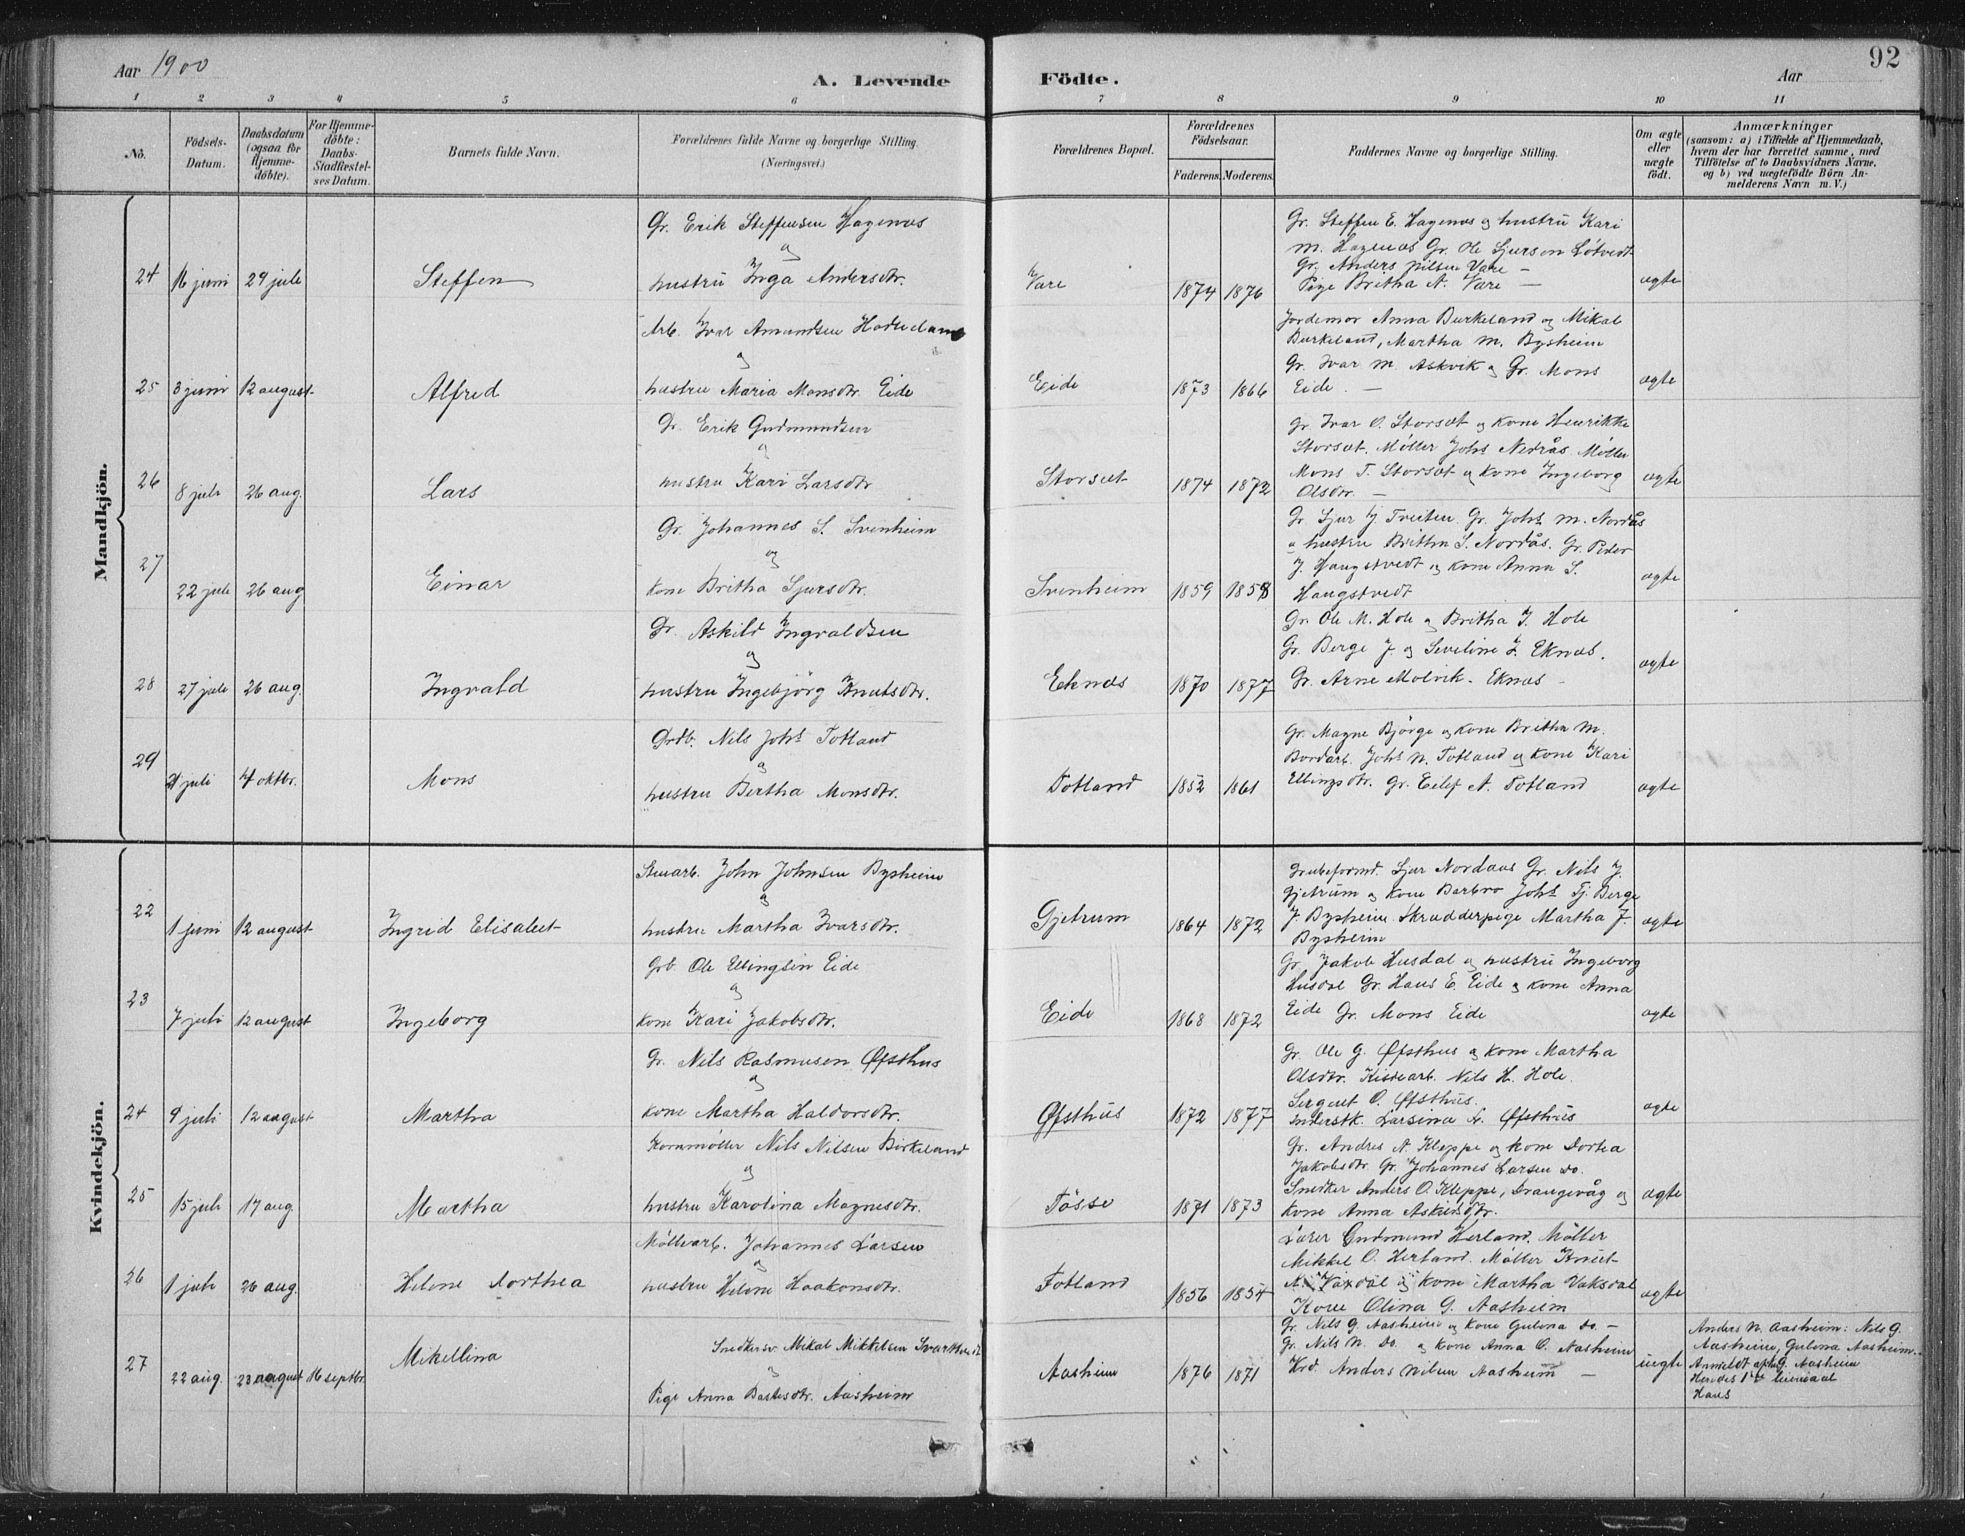 Aar 1900
A. Levende Födte.
Aar
92
1 2 3 4 5 6 7 8 9 10 11
No.
Födsels-Datum.
Daabsdatum (ogsaa for Hjemme-döbte).
For Hjemme-döbte: Daabs-Stadfæstel-ses Datum.
Barnets fulde Navn.
Forældrenes fulde Navne og borgerlige Stilling. (Næringsvei.)
Forældrenes Bopæl.
Forældrenes Födselsaar.
Faderens. Moderens.
Faddernes Navne og borgerlige Stilling.
Om ægte eller uægte födt.
Anmærkninger
(saasom: a) i Tilfælde af Hjemmedaab, hvem der har forrettet samme, med Tilföielse af to Daabsvidners Navne, og b) ved uægtefödte Börn An-melderens Navn m. V.)
Mandkjön.
24 16 juni 29 juli Steffen
Gr. Erik Steffensen Hagenæs
og
hustru Inga Andersdtr.
Vare 1874 1876
Gr. Steffen E. Hagenæs og hustru Kari
M. Hagenæs Gr. Ole Sjurson Løtvedt
Gr. Anders Nilsen Vare –
Pige Britha A. Vare –
ægte
25 3 juni 12 august Alfred
Arb. Ivar Amundsen
og
hustru Maria Monsdtr. Eide
Eide 1873 1866
Jordemor Anna Burkeland og Mikal
Burkeland, Martha M. Bysheim
Gr. Ivar M. Askvik og Gr. Mons
Eide. –
ægte
26 8 juli 26 aug. Lars
Gr. Erik Gudmundsen
og
hustru Kari Larsdtr
Storsæt 1874 1872
Gr. Ivar O. Storsæt og kone Henrikke
Storsæt. Møller Johs Nedrås Møller
Mons T. Storsæt og kone Ingeborg
Olsdtr. –
ægte
27 22 juli 26 aug Einar
Gr. Johannes S. Svenheim
og
kone Britha Sjursdtr.
Svenheim 1859 1858
Gr Sjur J. Treiten Gr. Johs M. Nordås
og hustru Britha S. Nordås. Gr. Peder
J. Haugstvedt og kone Anna S.
Haugstvedt
ægte
28 27 juli 26 aug. Ingvald
Gr. Askild Ingvaldsen
og
hustru Ingebjörg Knutsdtr.
Eknæs 1870 1877
Gr. Ole M. Hole og Britha J. Hole
Gr. Berge J. og Seveline J. Eknæs.
Gr. Arne Molvik. Eknæs –
ægte
29 21 juli 4 oktbr. Mons
Grdb. Nils Johs Totland
og
hustru Bertha Monsdtr.
Totland 1852 1861
Gr. Magne Björge og kone Britha M.
Bordarb. Johs N. Totland og kone Kari
Ellingsdtr. Gr. Eilef A. Totland
ægte
Kvindekjön.
22 1 juni 12 august Ingrid Elisabet
Stenarb. John Johnsen Bysheim
og
hustru Martha Ivarsdtr.
Gjetrum 1864 1872
Grubeformd. Sjur Nordaas Gr. Nils J.
Gjetrum og kone Barbro Johs Tj. Berge
J. Bysheim Skrædderpige Martha J.
Bysheim
ægte
23 7 juli 12 august Ingeborg
Grb. Ole Ellingsen Eide
og
kone Kari Jakobsdtr.
Eide 1868 1872
Gr. Jakob Husdal og hustru Ingeborg
Husdal Gr. Hans E. Eide og kone Anna
Eide Gr. Mons Eide
ægte
24 9 juli 12 august Martha
Gr. Nils Rasmusen Øfsthus
og
kone Martha Haldorsdtr.
Øfsthus 1872 1877
Gr. Ole G. Øfsthus og kone Martha
Olsdtr. Kistearb. Nils H. Hole.
Sergent O. Øfsthus.
Inderstk. Larsina N. Øfsthus
ægte
25 15 juli 17 aug. Martha
Kornmøller Nils Nilsen Birkeland
og
hustru Karolina Magnesdtr.
Tösse 1871 1873
Gr. Andres A. Kleppe og kone Dortea
Jakobsdtr. Gr. Johannes Larsen do.
Snedker Anders O. Kleppe, Drangevåg og
kone Anna Askildsdtr.
ægte
26 1 juli 26 aug. Helene Dorthea
Möllearb. Johannes Larsen
og
hustru Helene Haakonsdtr.
Totland 1856 1854
Lærer Gudmund Herland. Møller
Mikkel O. Herland. Møller Knut
A. Vaxdal og kone Martha Vaksdal
Kone Olina G. Aasheim
ægte
27 22 aug. 23 august 16 septbr. Mikellina
Snedkersv. Mikal Mikkelsen
og
Pige Anna Aasheim
Aasheim 1876 1871
Gr. Nils G. Aasheim og kone Gulena do. –
Gr. Nils N. do. og kone Anna O. Aasheim
Anders Nilsen Aasheim –
uægte
Anders N. Aasheim: Nils G.
Aasheim, Gulena Aasheim.
Anmeldt af G. Aasheim
Hendes 1ste
Hans